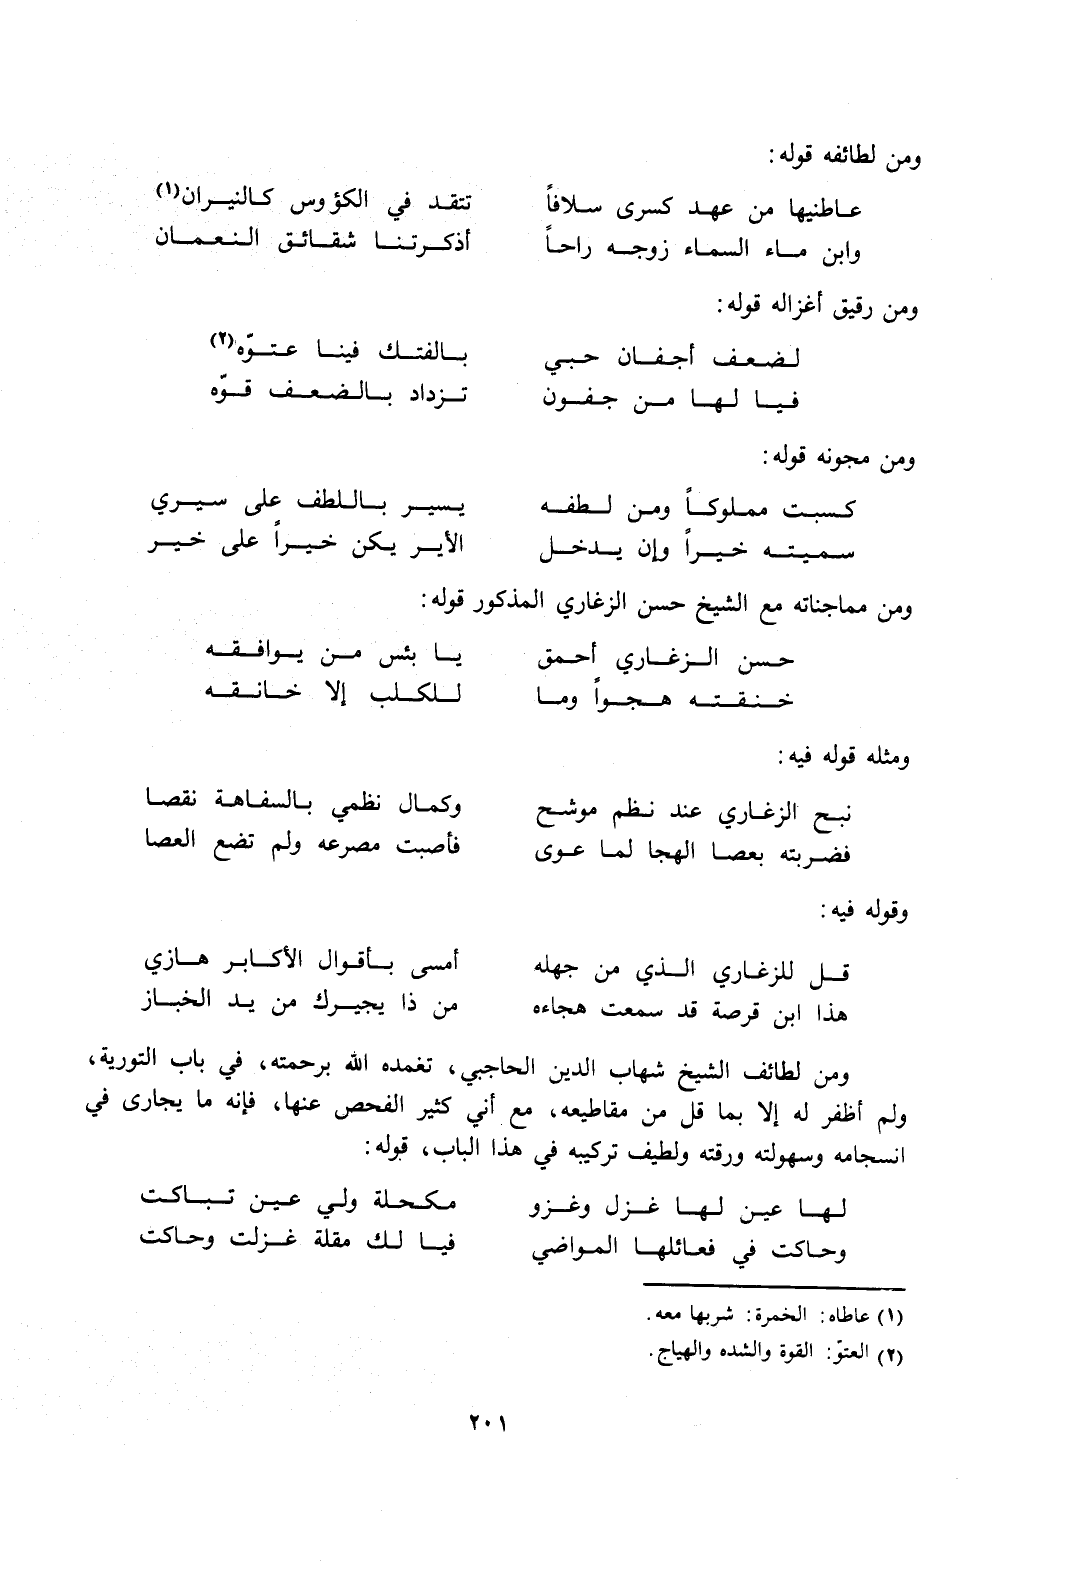 ومن لطائفه قوله:
عاطنيها من عهد كسرى سلافاً تتقد في الكؤوس كالنيران(١)
وابن ماء السماء زوجه راحاً أذكرتنا شقائق النعمان
ومن رقيق أغزاله قوله:
لضعف أجفان حبي بالفتك فينا عتوّه(٢)
فيا لها من جفون تزداد بالضعف قوّه
ومن مجونه قوله:
كسبت مملوكاً ومن لطفه يسير باللطف على سيري
سميته خيراً وإن يدخل الأير يكن خيراً على خير
ومن مماجناته مع الشيخ حسن الزغاري المذكور قوله:
حسن الزغاري أحمق يا بئس من يوافقه
خنقته هجواً وما للكلب إلا خانقه
ومثله قوله فيه:
نبح الزغاري عند نظم موشح وكمال نظمي بالسفاهة نقصا
فضربته بعصا الهجا لما عوى فأصبت مصرعه ولم تضع العصا
وقوله فيه:
قل للزغاري الذي من جهله أمسى بأقوال الأكابر هازي
هذا ابن قرصة قد سمعت هجاءه من ذا يجيرك من يد الخباز
ومن لطائف الشيخ شهاب الدين الحاجبي، تغمده الله برحمته، في باب التورية،
ولم أظفر له إلا بما قل من مقاطيعه، مع أني كثير الفحص عنها، فإنه ما يجارى في
انسجامه وسهولته ورقته ولطيف تركيبه في هذا الباب، قوله:
لها عين لها غزل وغزو مكحلة ولي عين تباكت
وحاكت في فعائلها المواضي فيا لك مقلة غزلت وحاكت
(١) عاطاه: الخمرة: شربها معه.
(٢) العتوّ: القوة والشده والهياج.
٢٠١